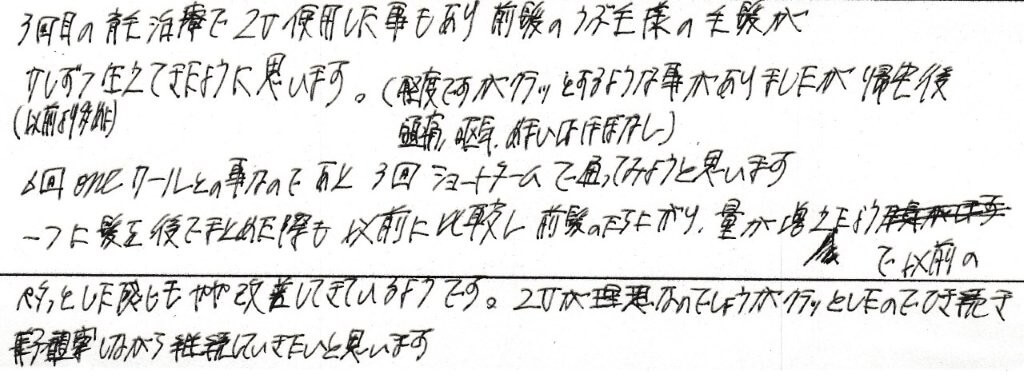 3回目の育毛治療で2U使用した事もあり前髪のウブ毛様の毛髪が
少しずつ生えてきたように思います。(軽度ですがクラッとするような事がありましたが帰宅後
(以前より多めに) 頭痛、嘔気、めまいはほぼなし)
6回oneクールとの事なのであと3回ショートタームで通ってみようと思います
一つに髪を後でまとめた際も以前に比較し前髪の立ち上がり、量が増えたよう
で以前の
ペタッとした感じもやや改善してきているようです。2Uが理想なのでしょうがクラッとしたのでひき続き
観察しながら継続していきたいと思います